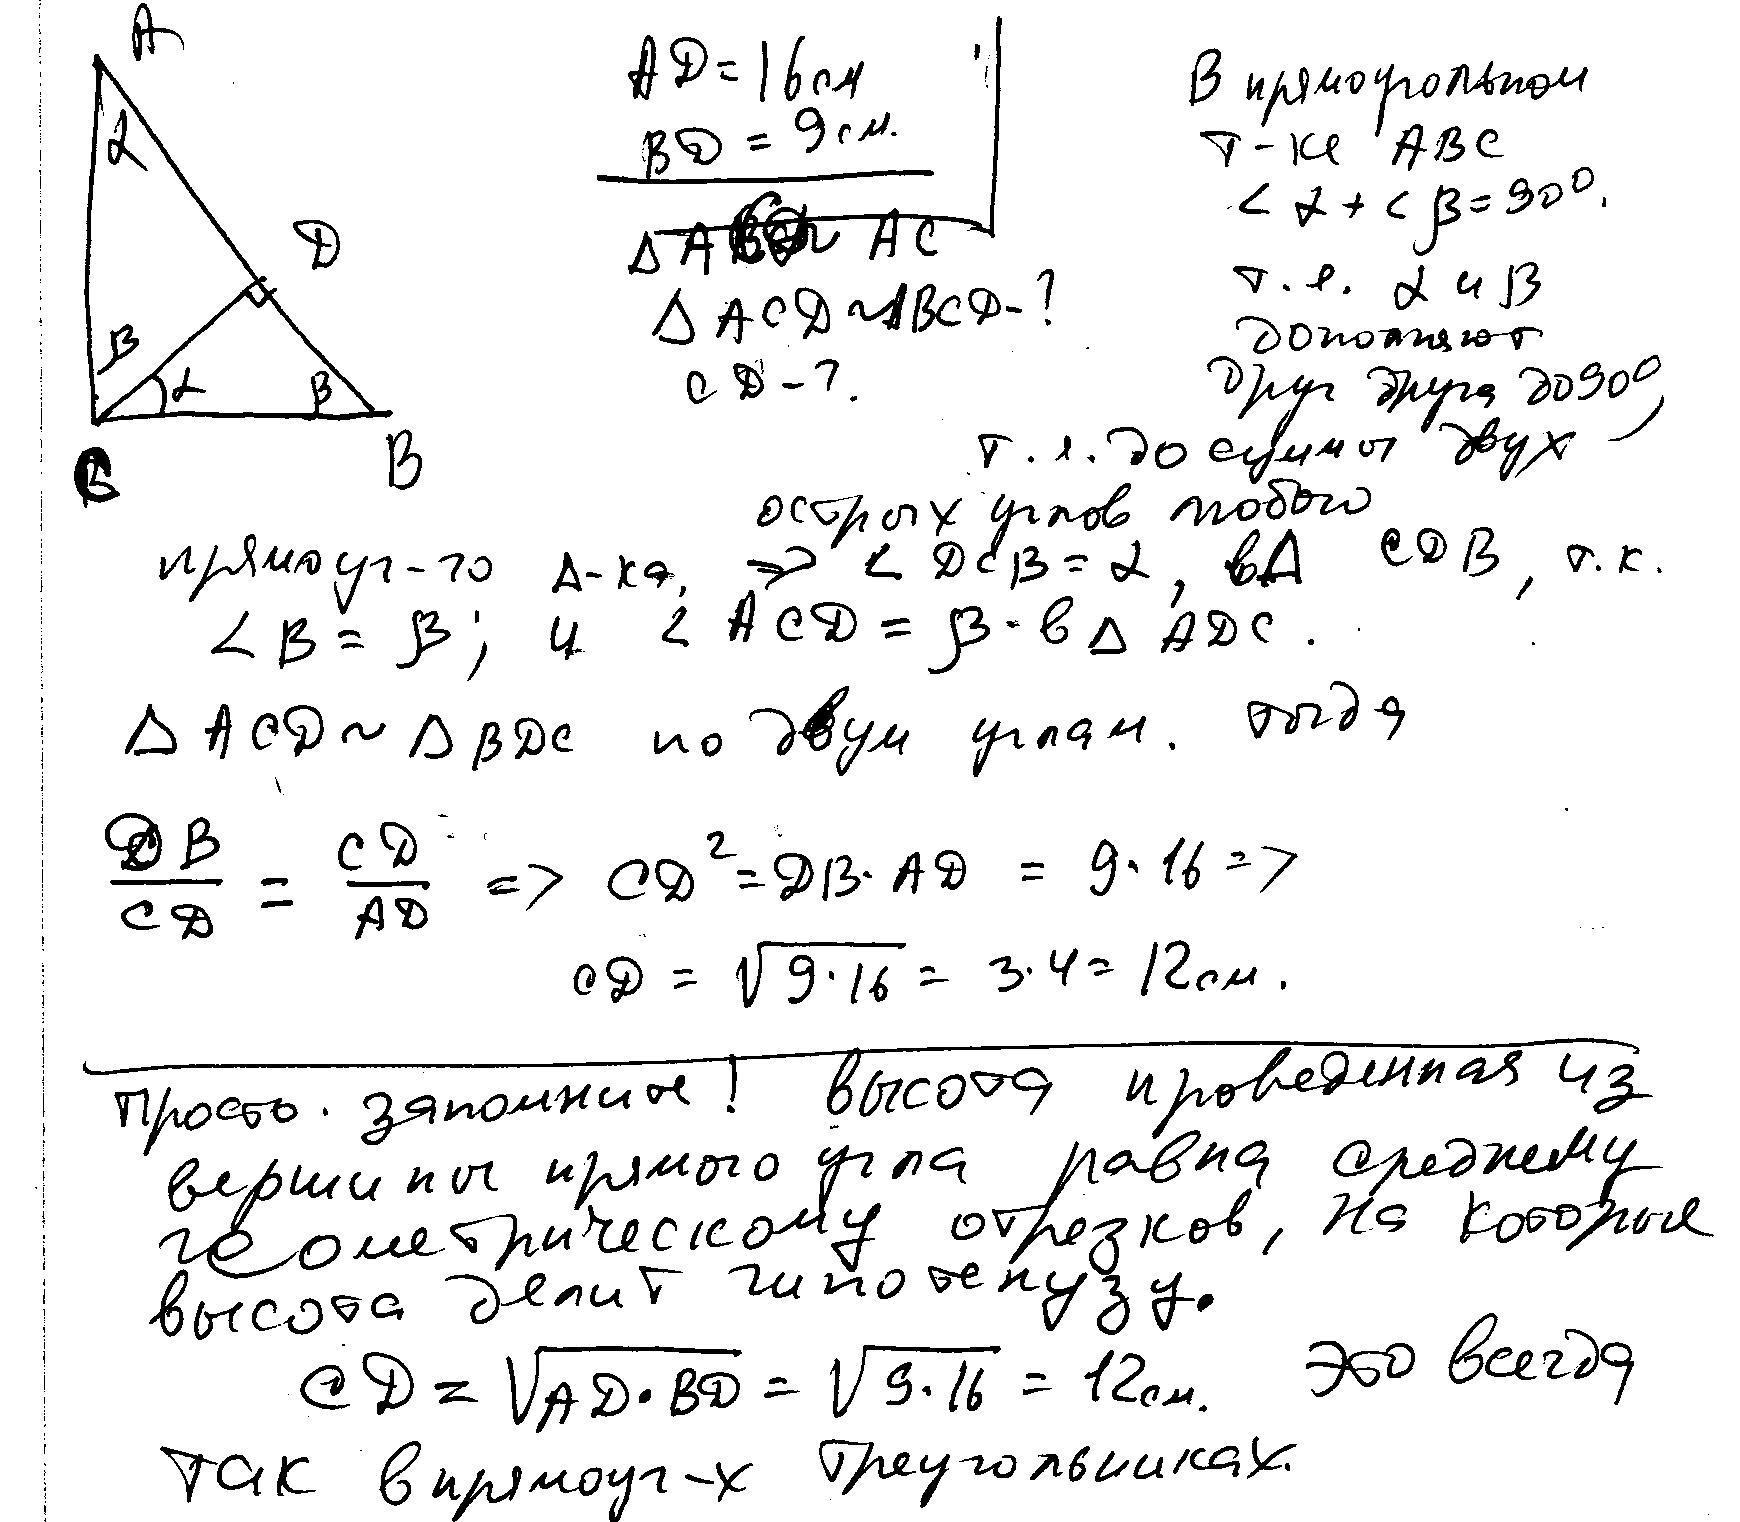 A
α
D
β
α
β
C
B
AD = 16 см
BD = 9 см.
Δ A ~ AC
Δ ACD ~ ΔBCD - ?
CD - ?.
В прямоугольном
т-ке ABC
∠ α + ∠ β = 90°.
т.е. α и β
дополняют
друг друга до 90°,
т.е. до суммы двух
острых углов любого
прямоуг-го Δ-ка, => ∠ DCB = α, в Δ CDB, т.к.
∠ B = β; и ∠ ACD = β - в Δ ADC.
Δ ACD ~ Δ BDC по двум углам. тогда
DB/CD = CD/AD => CD² = DB · AD = 9 · 16 =>
CD = √9·16 = 3·4 = 12 см.
Просто запомните! высота проведенная из
вершины прямого угла равна среднему
геометрическому отрезков, на которые
высота делит гипотенузу.
CD = √AD·BD = √9·16 = 12 см. это всегда
так в прямоуг-х треугольниках.